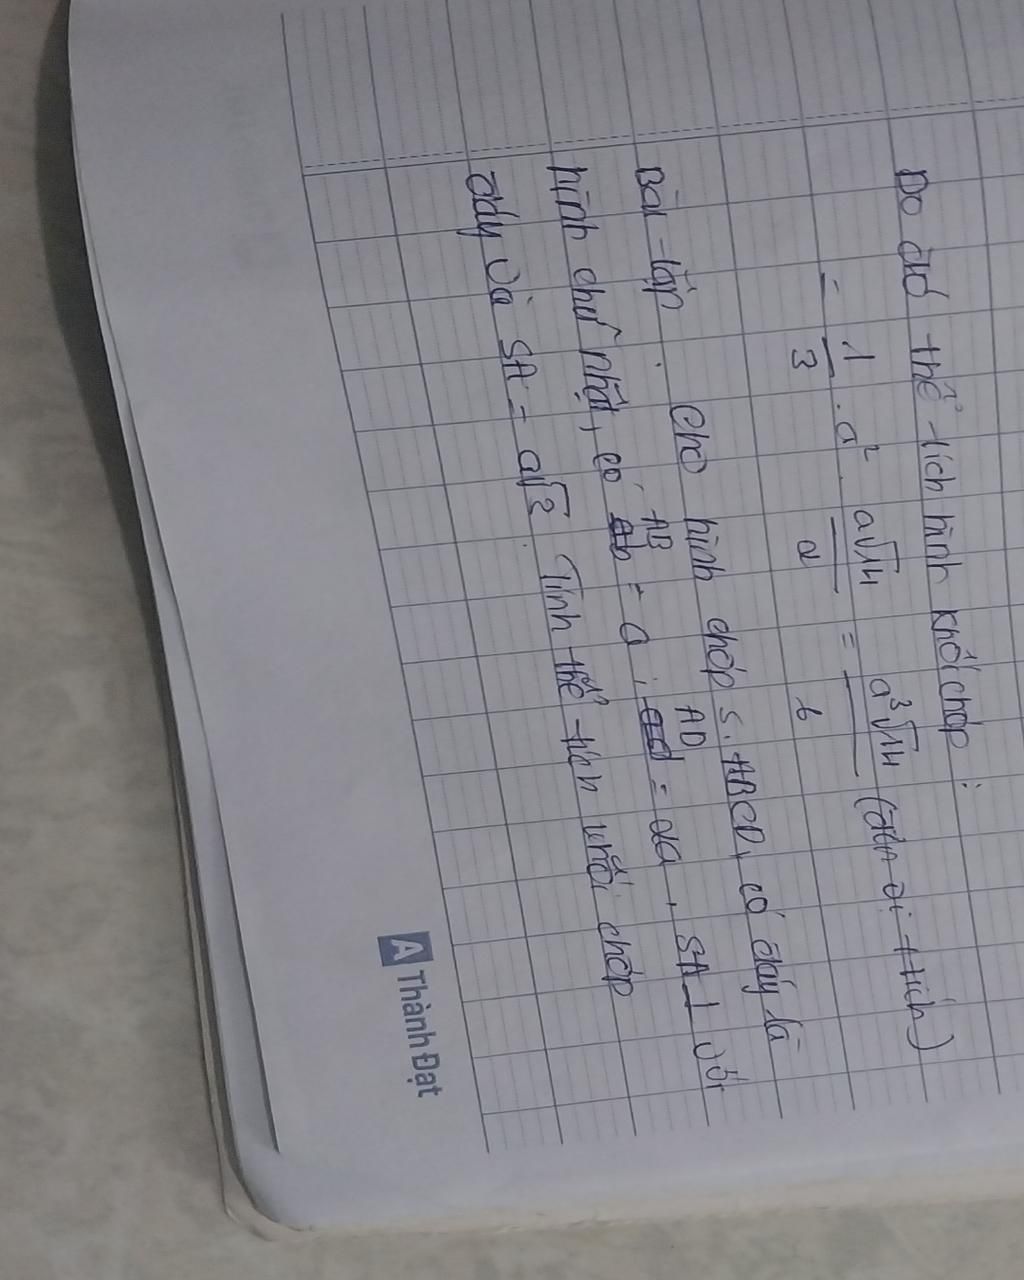 Do đó thể tích hình khối chóp :
= 1/3 . a² . a√14/2 = a³√14/6 (đơn vị t tích)
Bài tập . Cho hình chóp S.ABCD, có đáy là
hình chữ nhật, có AB = a , AD = 2a , SA ⊥ với
đáy và SA = a√3 Tính thể tích khối chóp
A Thành Đạt